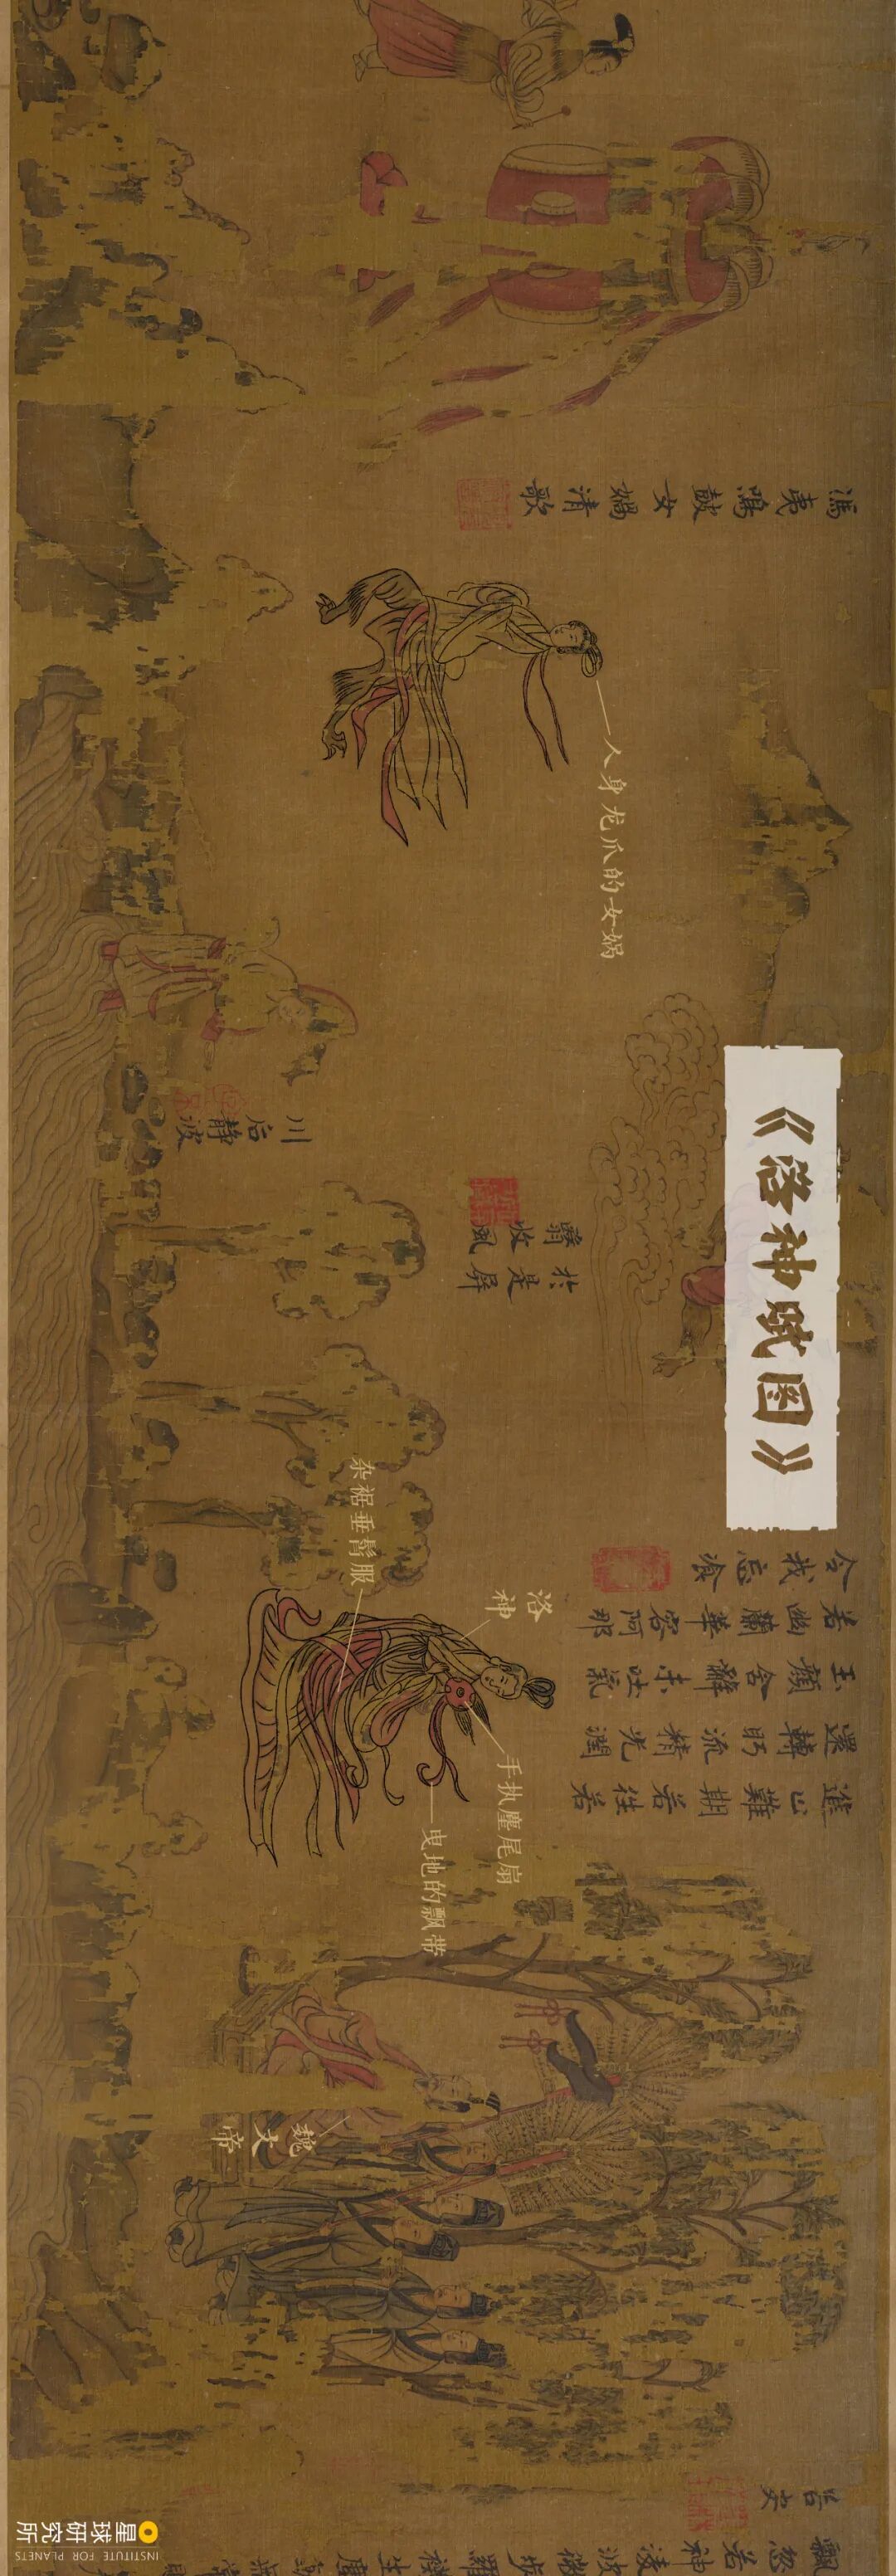 《洛神赋图》
馮夷鳴鼓女媧清歌
人身龙爪的女娲
川后静波
於是屏
翳收風
進止難期若往若
還轉眄流精光潤
玉顏含辭未吐氣
若幽蘭華容阿那
令我忘飡
洛神
杂裾垂髾服
手执麈尾扇
曳地的飘带
魏文帝
飄忽若神淩波微步羅襪生塵
星球研究所
INSTITUTE FOR PLANETS